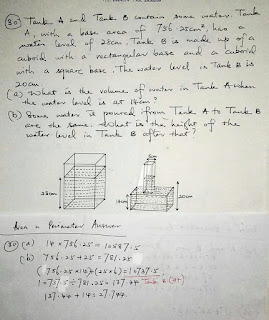 (30) Tank A and Tank B contain some water. Tank
A, with a base area of 756.25cm², has a
water level of 28cm. Tank B is made up of a
cuboid with a rectangular base and a cuboid
with a square base. The water level in Tank B is
20cm
(a) What is the volume of water in Tank A when
the water level is at 14cm?
(b) Some water is poured from Tank A to Tank B
are the same. What is the height of the
water level in Tank B after that?
28cm
14cm
20cm
Perimeter Answer
(30) (a) 14 × 756.25 = 10587.5
(b) 756.25 + 25 = 781.25
137.44 + 14 =